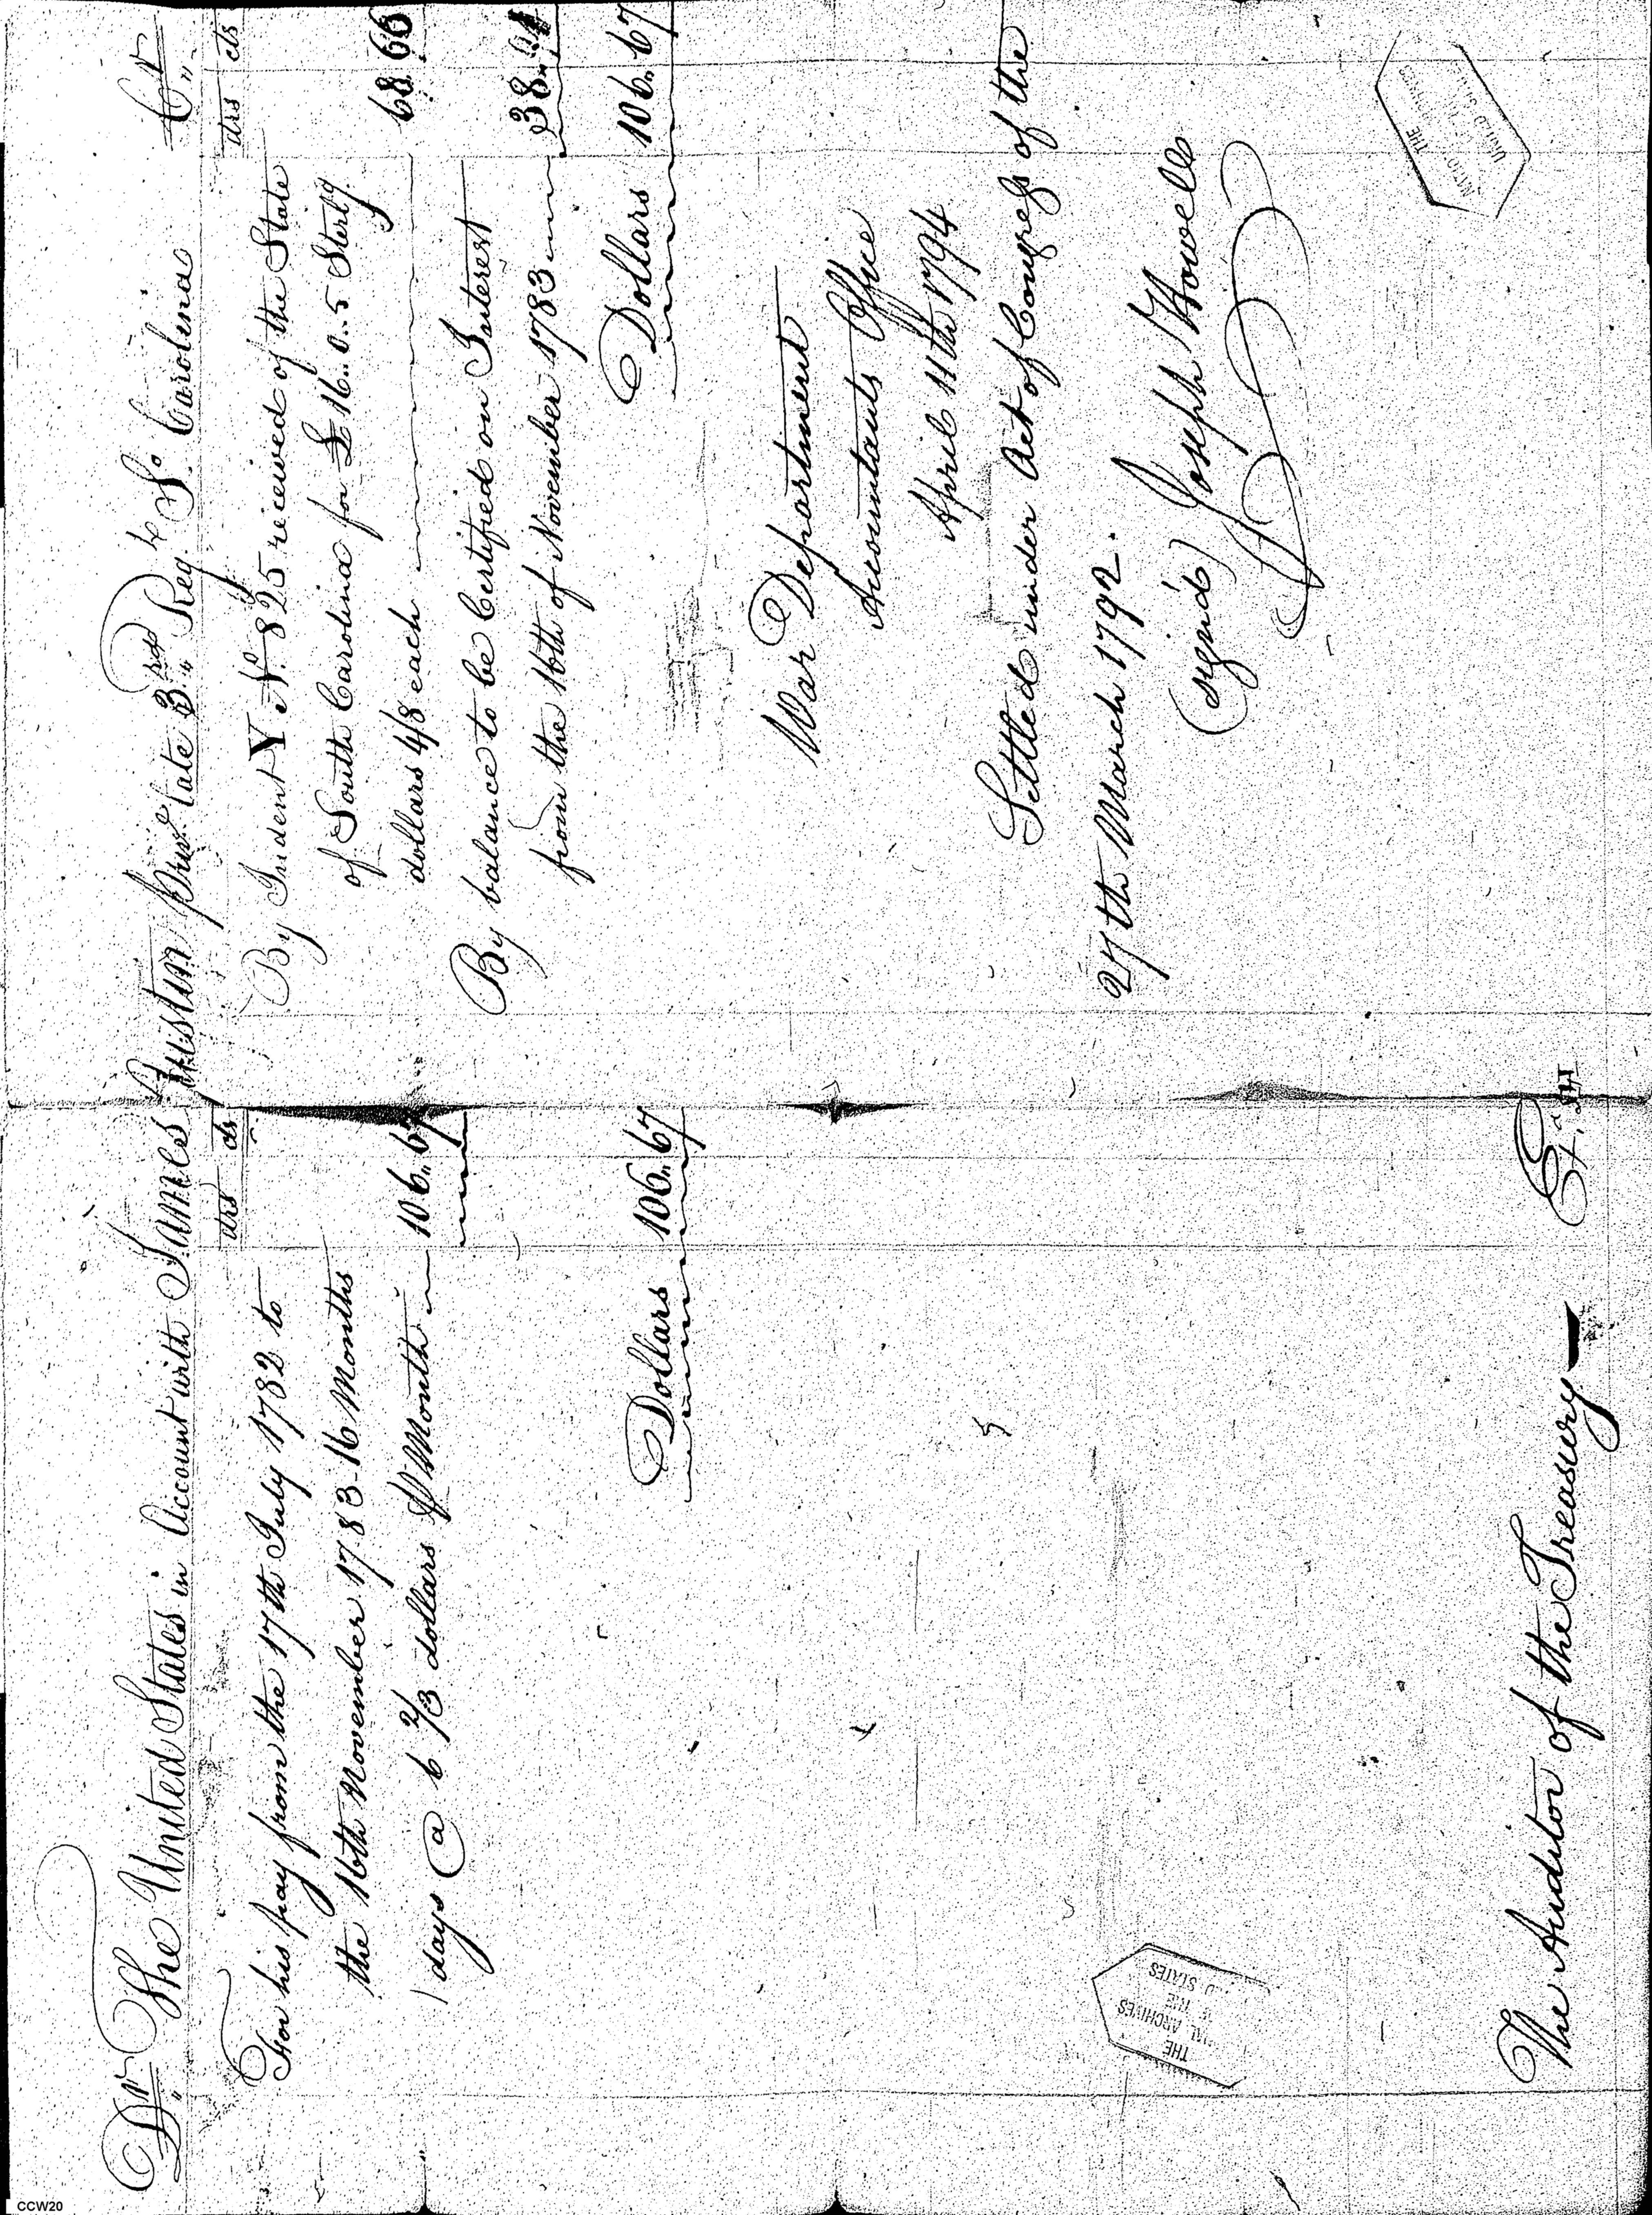 Dr The United States in Account with James Austin Priv.e late 3rd Reg.t So. Carolina Cr
drs cts
For his pay from the 17th July 1782 to
the 16th November 1783-16 Months
days @ 6 2/3 dollars P Month 106..67
Dollars 106..67
drs cts
By Indent Y No. 825 received of the State
of South Carolina for £16..0..5 Sterlg
dollars 4/8 each 68.66
By balance to be Certified on Interest
from the 16th of November 1783 38..01
Dollars 106..67
War Department
Accountants Office
April 11th 1794
Settled under Act of Congress of the
27th March 1792.
(signd) Joseph Howell
The Auditor of the Treasury
THE
ARCHIVES
THE
STATES
THE
CCW20